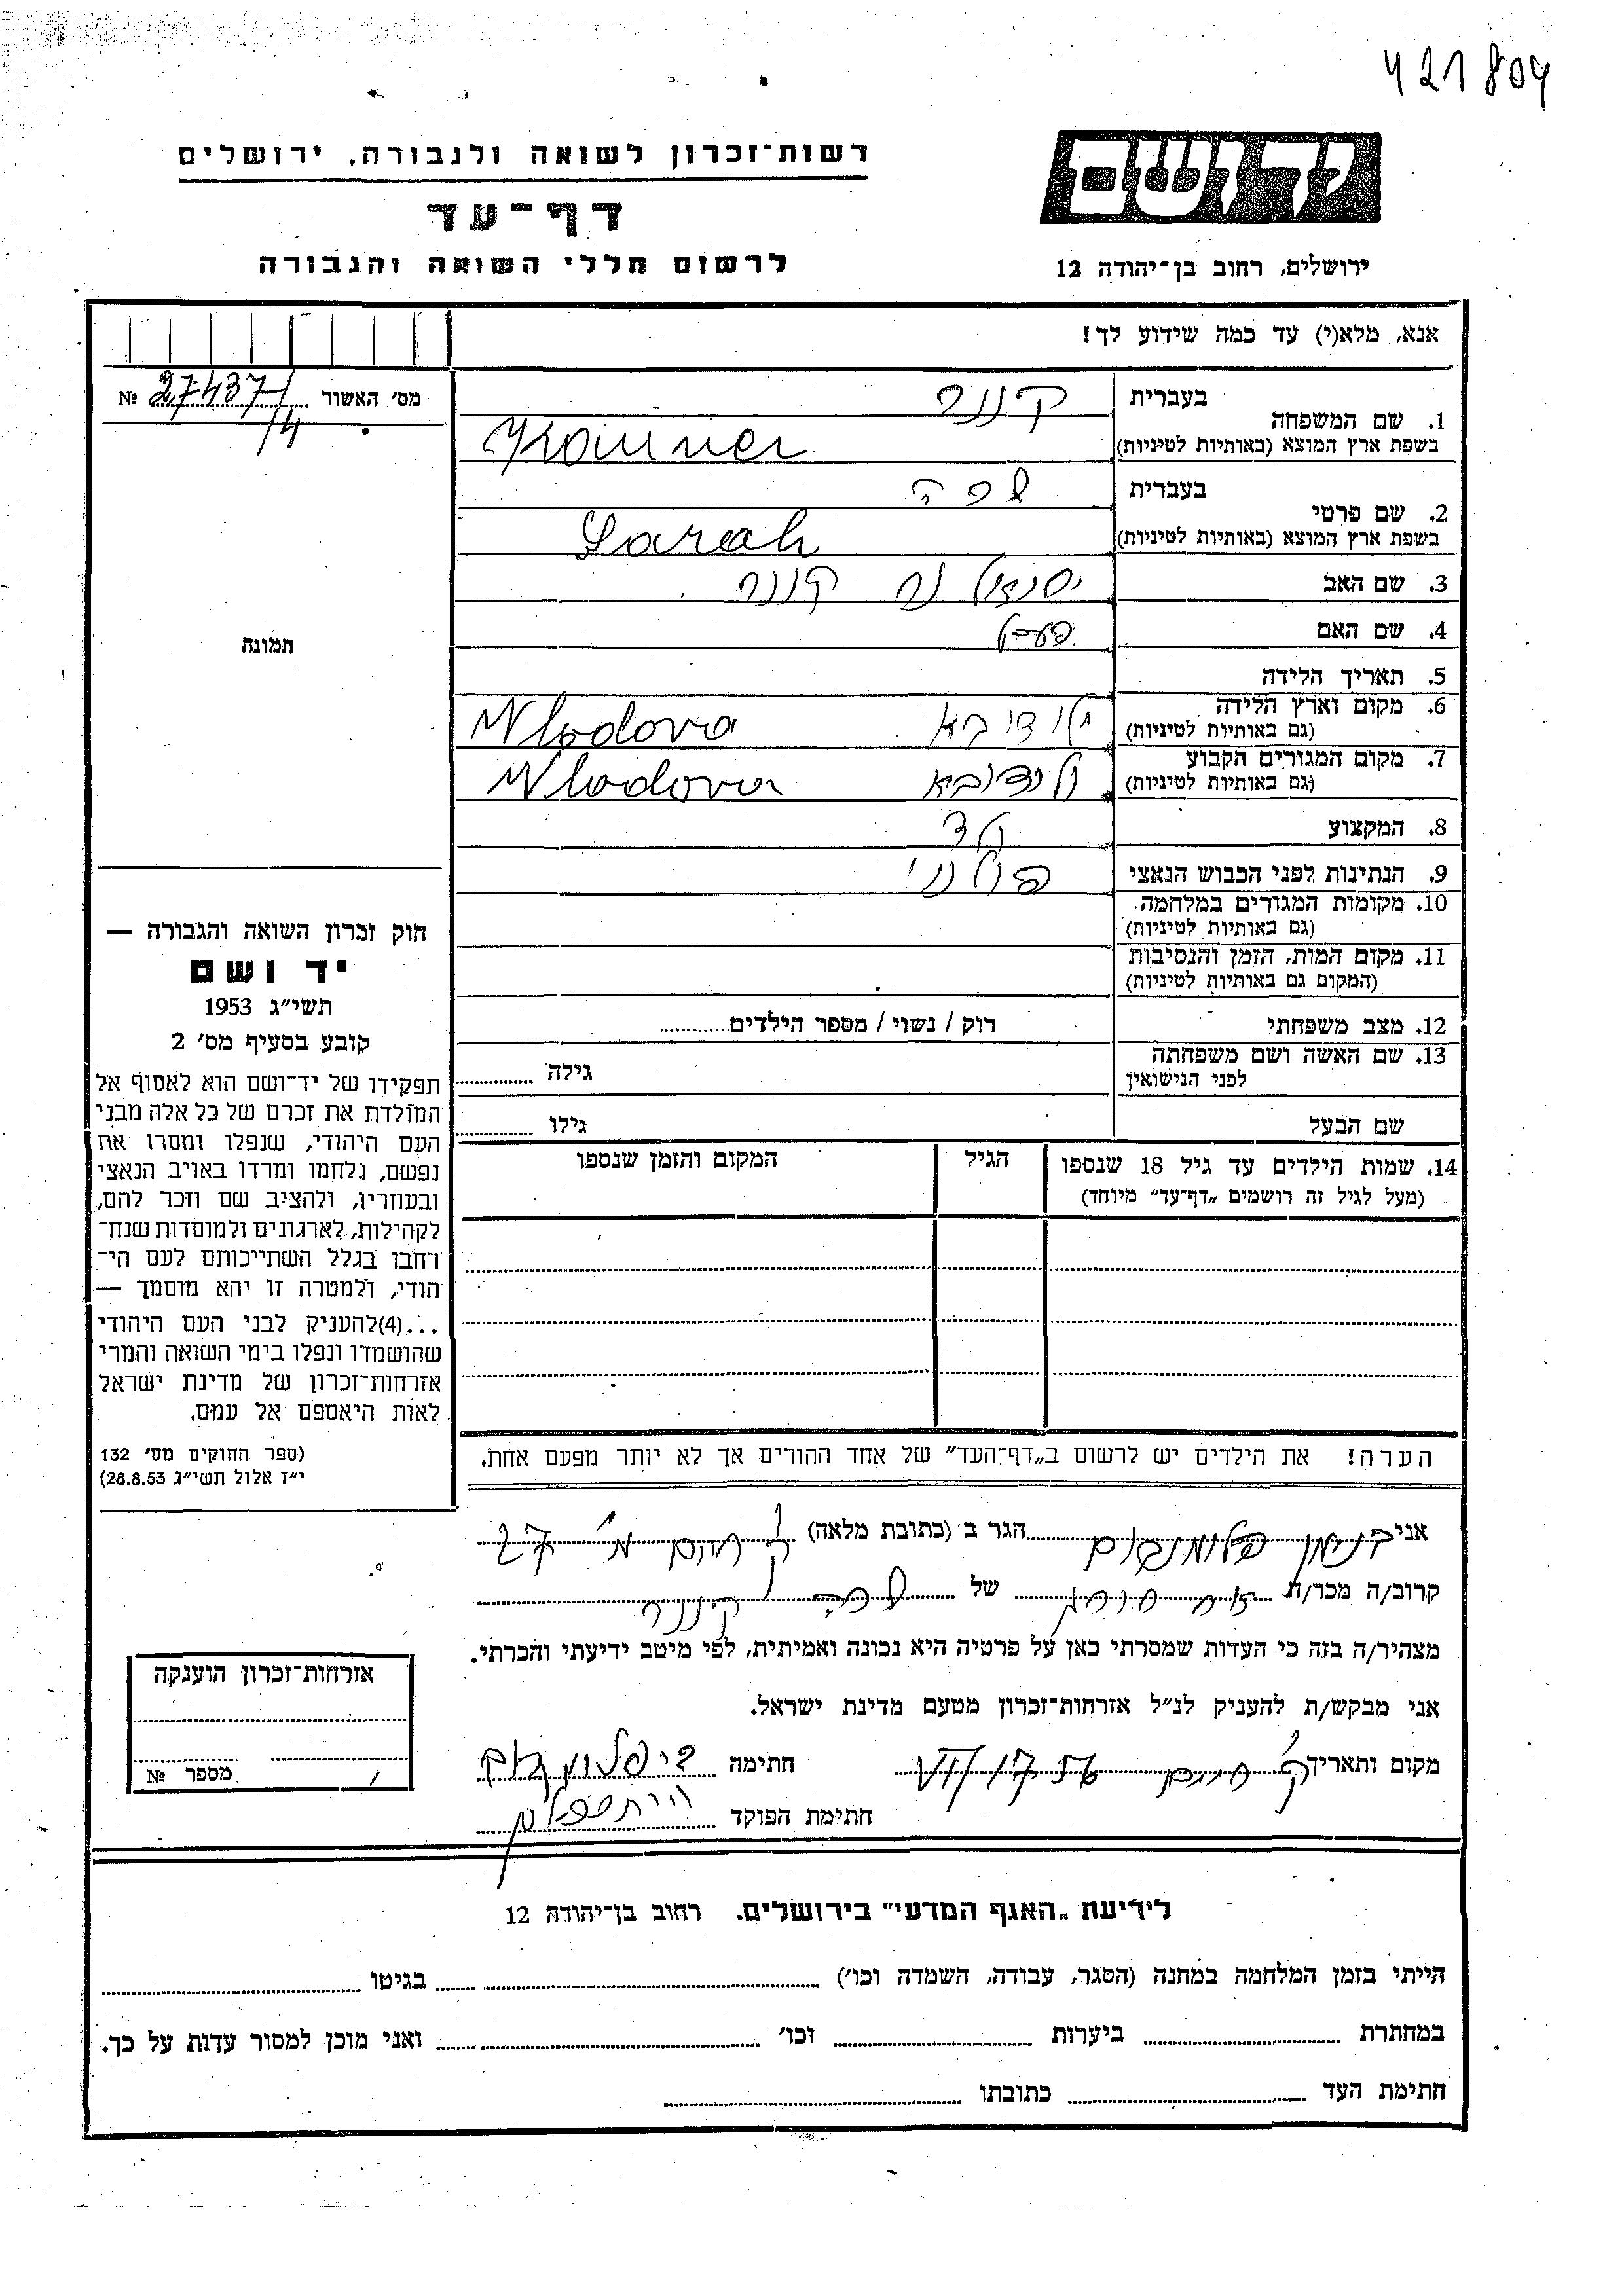 421804
רשות־זכרון לשואה ולגבורה, ירושלים
יד ושם
דף־עד
ירושלים, רחוב בן־יהודה 12
לרשום חללי השואה והגבורה
אנא, מלא(י) עד כמה שידוע לך!
מס׳ האשור 27437/4 №
1. שם המשפחה
בעברית קננר
בשפת ארץ המוצא (באותיות לטיניות)
2. שם פרטי
בעברית שרה
בשפת ארץ המוצא (באותיות לטיניות) Sarah
3. שם האב קננר
4. שם האם
5. תאריך הלידה
6. מקום וארץ הלידה ולודובא Wlodova
(גם באותיות לטיניות)
7. מקום המגורים הקבוע ולודובא Wlodova
(גם באותיות לטיניות)
8. המקצוע ילד
9. הנתינות לפני הכבוש הנאצי פולני
10. מקומות המגורים במלחמה
(גם באותיות לטיניות)
11. מקום המות, הזמן והנסיבות
(המקום גם באותיות לטיניות)
12. מצב משפחתי רוק / נשוי / מספר הילדים
13. שם האשה ושם משפחתה גילה
לפני הנישואין
שם הבעל גילו
14. שמות הילדים עד גיל 18 שנספו הגיל המקום והזמן שנספו
(מעל לגיל זה רושמים „דף־עד” מיוחד)
הערה! את הילדים יש לרשום ב„דף־העד” של אחד ההורים אך לא יותר מפעם אחת.
תמונה
חוק זכרון השואה והגבורה —
יד ושם
תשי״ג 1953
קובע בסעיף מס׳ 2
תפקידו של יד־ושם הוא לאסוף אל
המולדת את זכרם של כל אלה מבני
העם היהודי, שנפלו ומסרו את
נפשם, נלחמו ומרדו באויב הנאצי
ובעוזריו, ולהציב שם וזכר להם,
לקהילות, לארגונים ולמוסדות שנח־
רחבו בגלל השתייכותם לעם הי־
הודי, ולמטרה זו יהא מוסמך —
...(4)להעניק לבני העם היהודי
שהושמדו ונפלו בימי השואה והמרי
אזרחות־זכרון של מדינת ישראל
לאות היאספם אל עמם.
(ספר החוקים מס׳ 132
י״ז אלול תשי״ג 28.8.53)
אני בנימין פלומנבוים הגר ב (כתובת מלאה) 27
קרוב/ה מכר/ת של שרה קננר
מצהיר/ה בזה כי העדות שמסרתי כאן על פרטיה היא נכונה ואמיתית, לפי מיטב ידיעתי והכרתי.
אני מבקש/ת להעניק לנ״ל אזרחות־זכרון מטעם מדינת ישראל.
מקום ותאריך ק׳ חיים חתימה
חתימת הפוקד
אזרחות־זכרון הוענקה
מספר №
לידיעת „האגף המדעי” בירושלים. רחוב בן־יהודה 12
הייתי בזמן המלחמה במחנה (הסגר, עבודה, השמדה וכו׳) בגיטו
במחתרת ביערות וכו׳ ואני מוכן למסור עדות על כך.
חתימת העד כתובתו